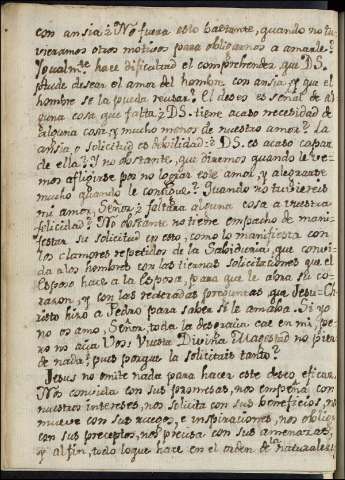 con ansia? No fuera esto bastante, quando no tu-
vieramos otros motivos para obligarnos a amarle?
Igualmte. hace dificultad el comprehender que DS.
pueda desear el amor del hombre con ansia, y que el
hombre se la pueda reusar? El deseo es señal de al-
guna cosa que falta: DS. tiene acaso necesidad de
alguna cosa, y mucho menos de nuestro amor? La
ansia o solicitud es debilidad: DS. es acaso capaz
de ella? Y no obstante, que diremos quando le ve-
mos afligirse por no lograr este amor, y alegrarse
mucho quando le consigue? Quando no tuviereis
mi amor, Señor, faltara alguna cosa a vuestra
felicidad? No obstante no tiene empacho de mani-
festar su solicitud en esto, como lo manifiesta con
los clamores repetidos de la Sabiduria, que convi-
da a los hombres con las tiernas solicitaciones que el
Esposo hace a la Esposa, para que le abra su co-
razon, y con las reiteradas preguntas que Jesu-Ch-
risto hizo a Pedro para saber si le amaba. Si yo
no os amo, Señor, toda la desgracia cae en mi, pe-
ro no aîa Vos: Vuestra Divina Magestad no pier-
de nada; pues porque la solicitais tanto?
Jesus no omite nada para hacer este deseo eficaz.
Nos convida con sus promesas, nos empeña con
nuestros intereses, nos solicita con sus beneficios, nos
mueve con sus ruegos, e inspiraciones, nos obliga
con sus preceptos, nos precisa con sus amenazas,
y al fin, todo lo que hace en el orden de la naturaleza